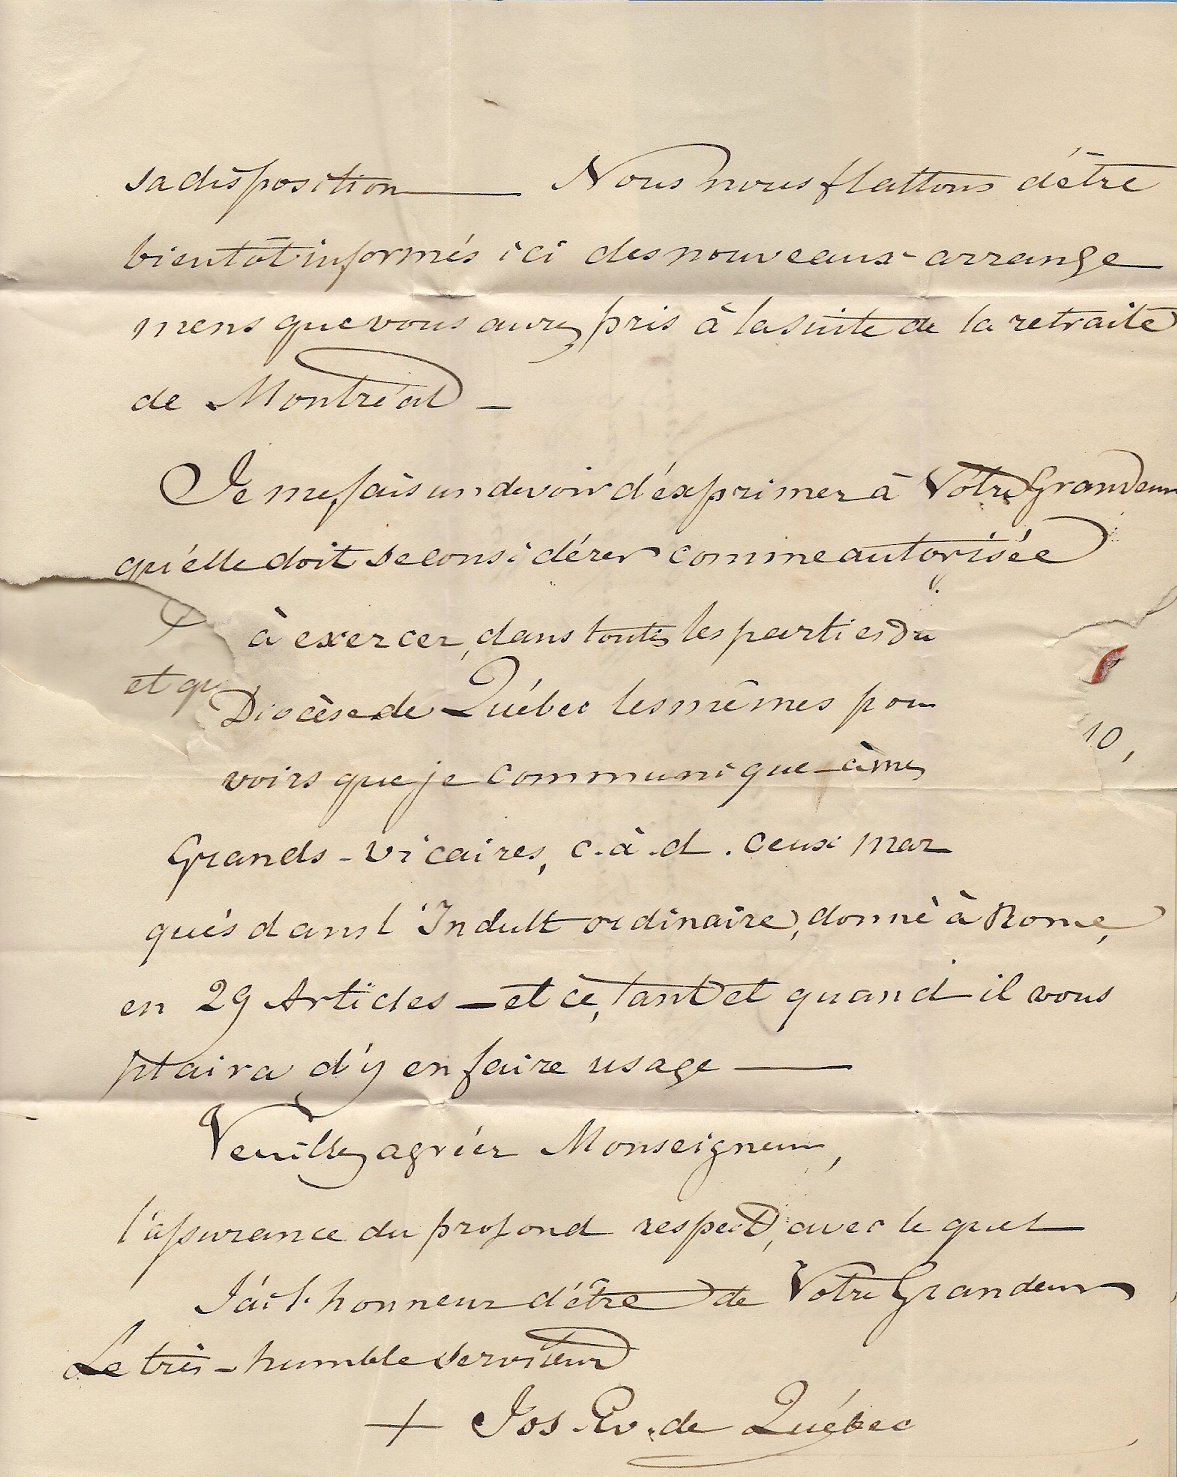 sa disposition — Nous nous flattons d'être
bientôt informés ici des nouveaux arrange
mens que vous aurez pris à la suite de la retraite
de Montréal —
Je me fais un devoir d'exprimer à Votre Grandeur
qu'elle doit se considérer comme autorisée
à exercer, dans toutes les parties du
et qu
Diocèse de Québec les mêmes pou
10,
voirs que je communique à mes
Grands-vicaires, c.à.d. ceux mar
qués dans l'Indult ordinaire, donné à Rome,
en 29 Articles — et ce, tant et quand il vous
plaira d'y en faire usage —
Veuillez agréer Monseigneur,
l'assurance du profond respect, avec lequel
J'ai l'honneur d'être de Votre Grandeur
Le très-humble serviteur
+ Jos. Ev. de Québec